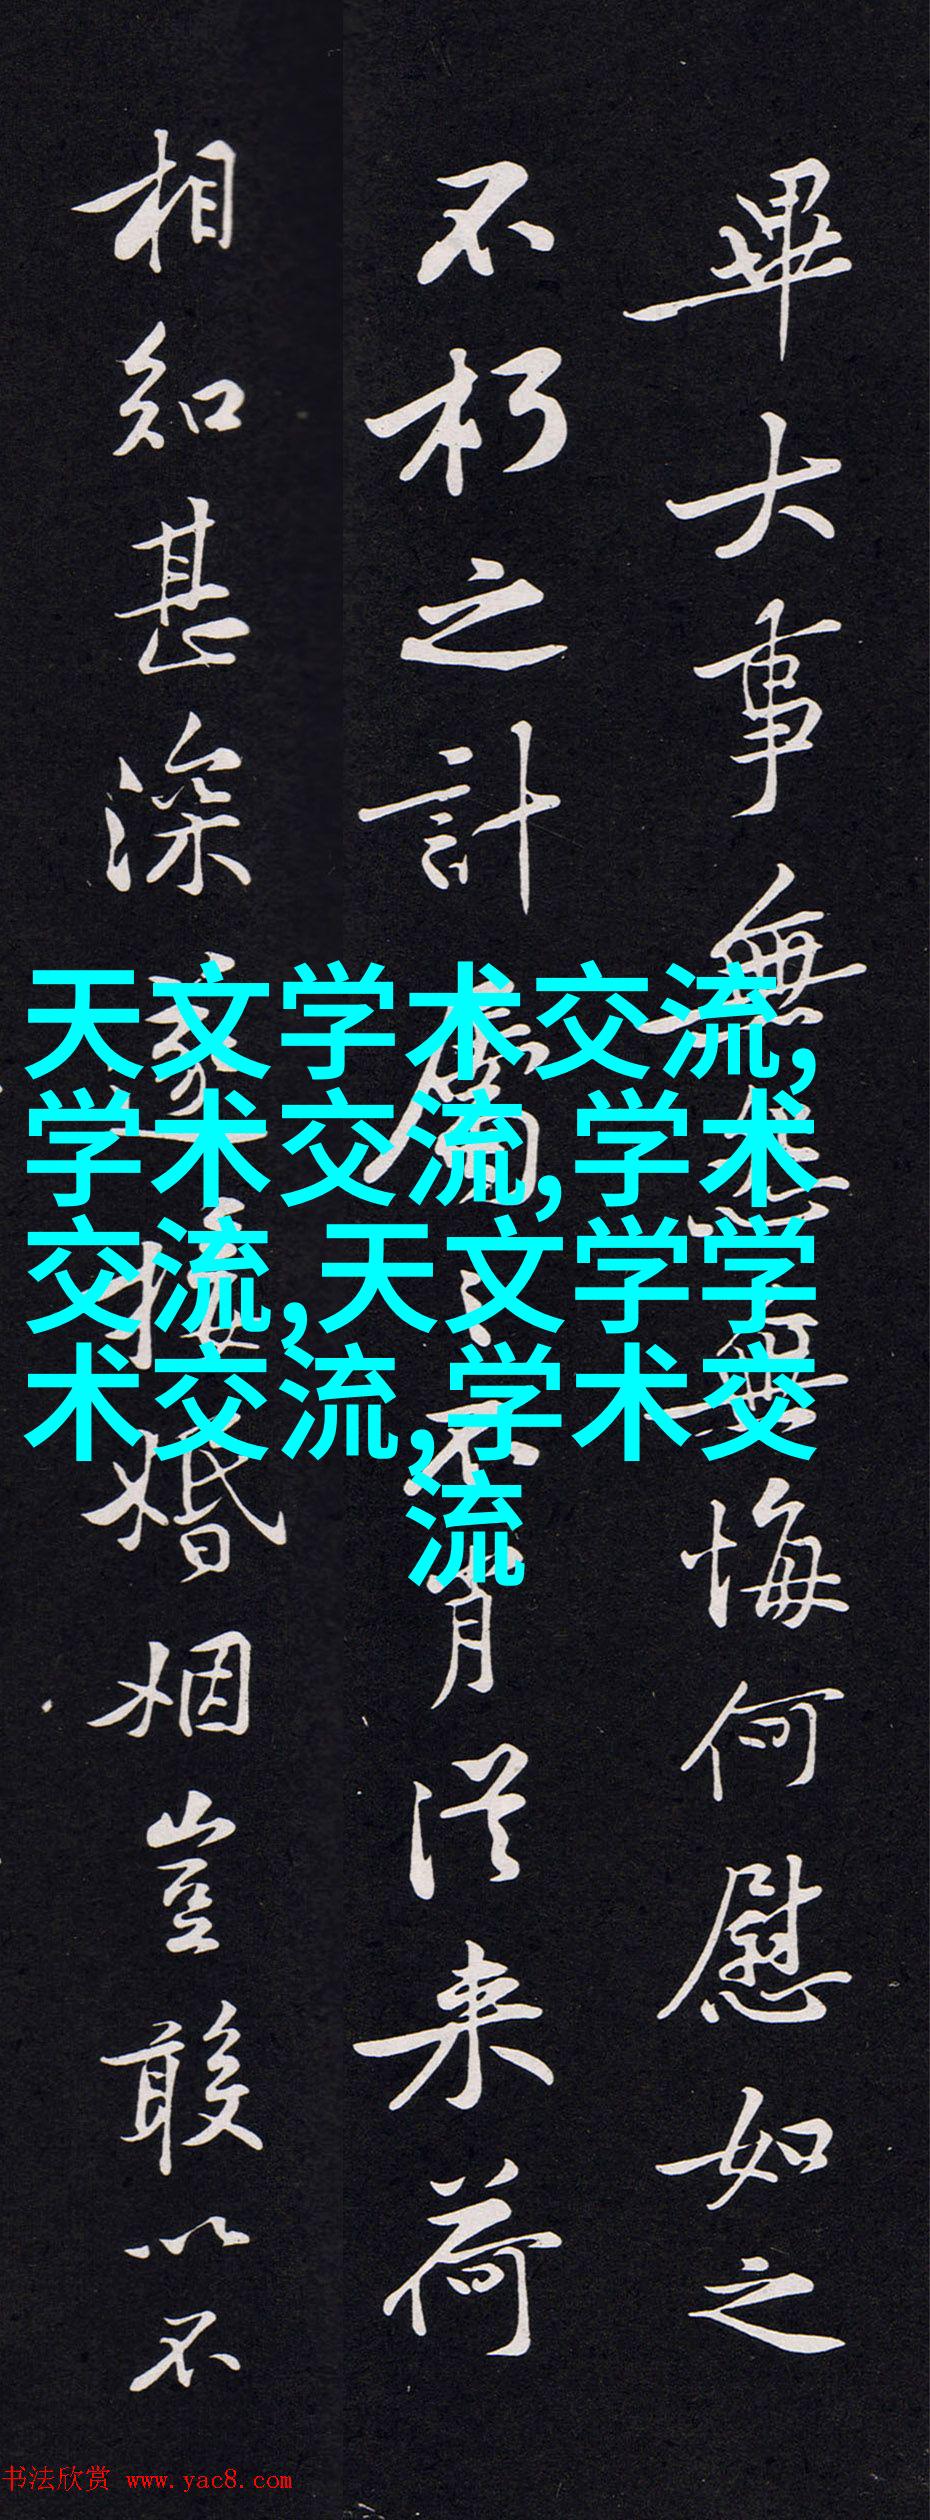 畢大事無愁無悔何慰如之
不朽之計屬之不肖從来荷
相知甚深遂接婚姻豈敢以不
天文学术交流,
学术交流,学术
交流,天文学学
术交流,学术交
流
书法欣赏 www.yac8.com